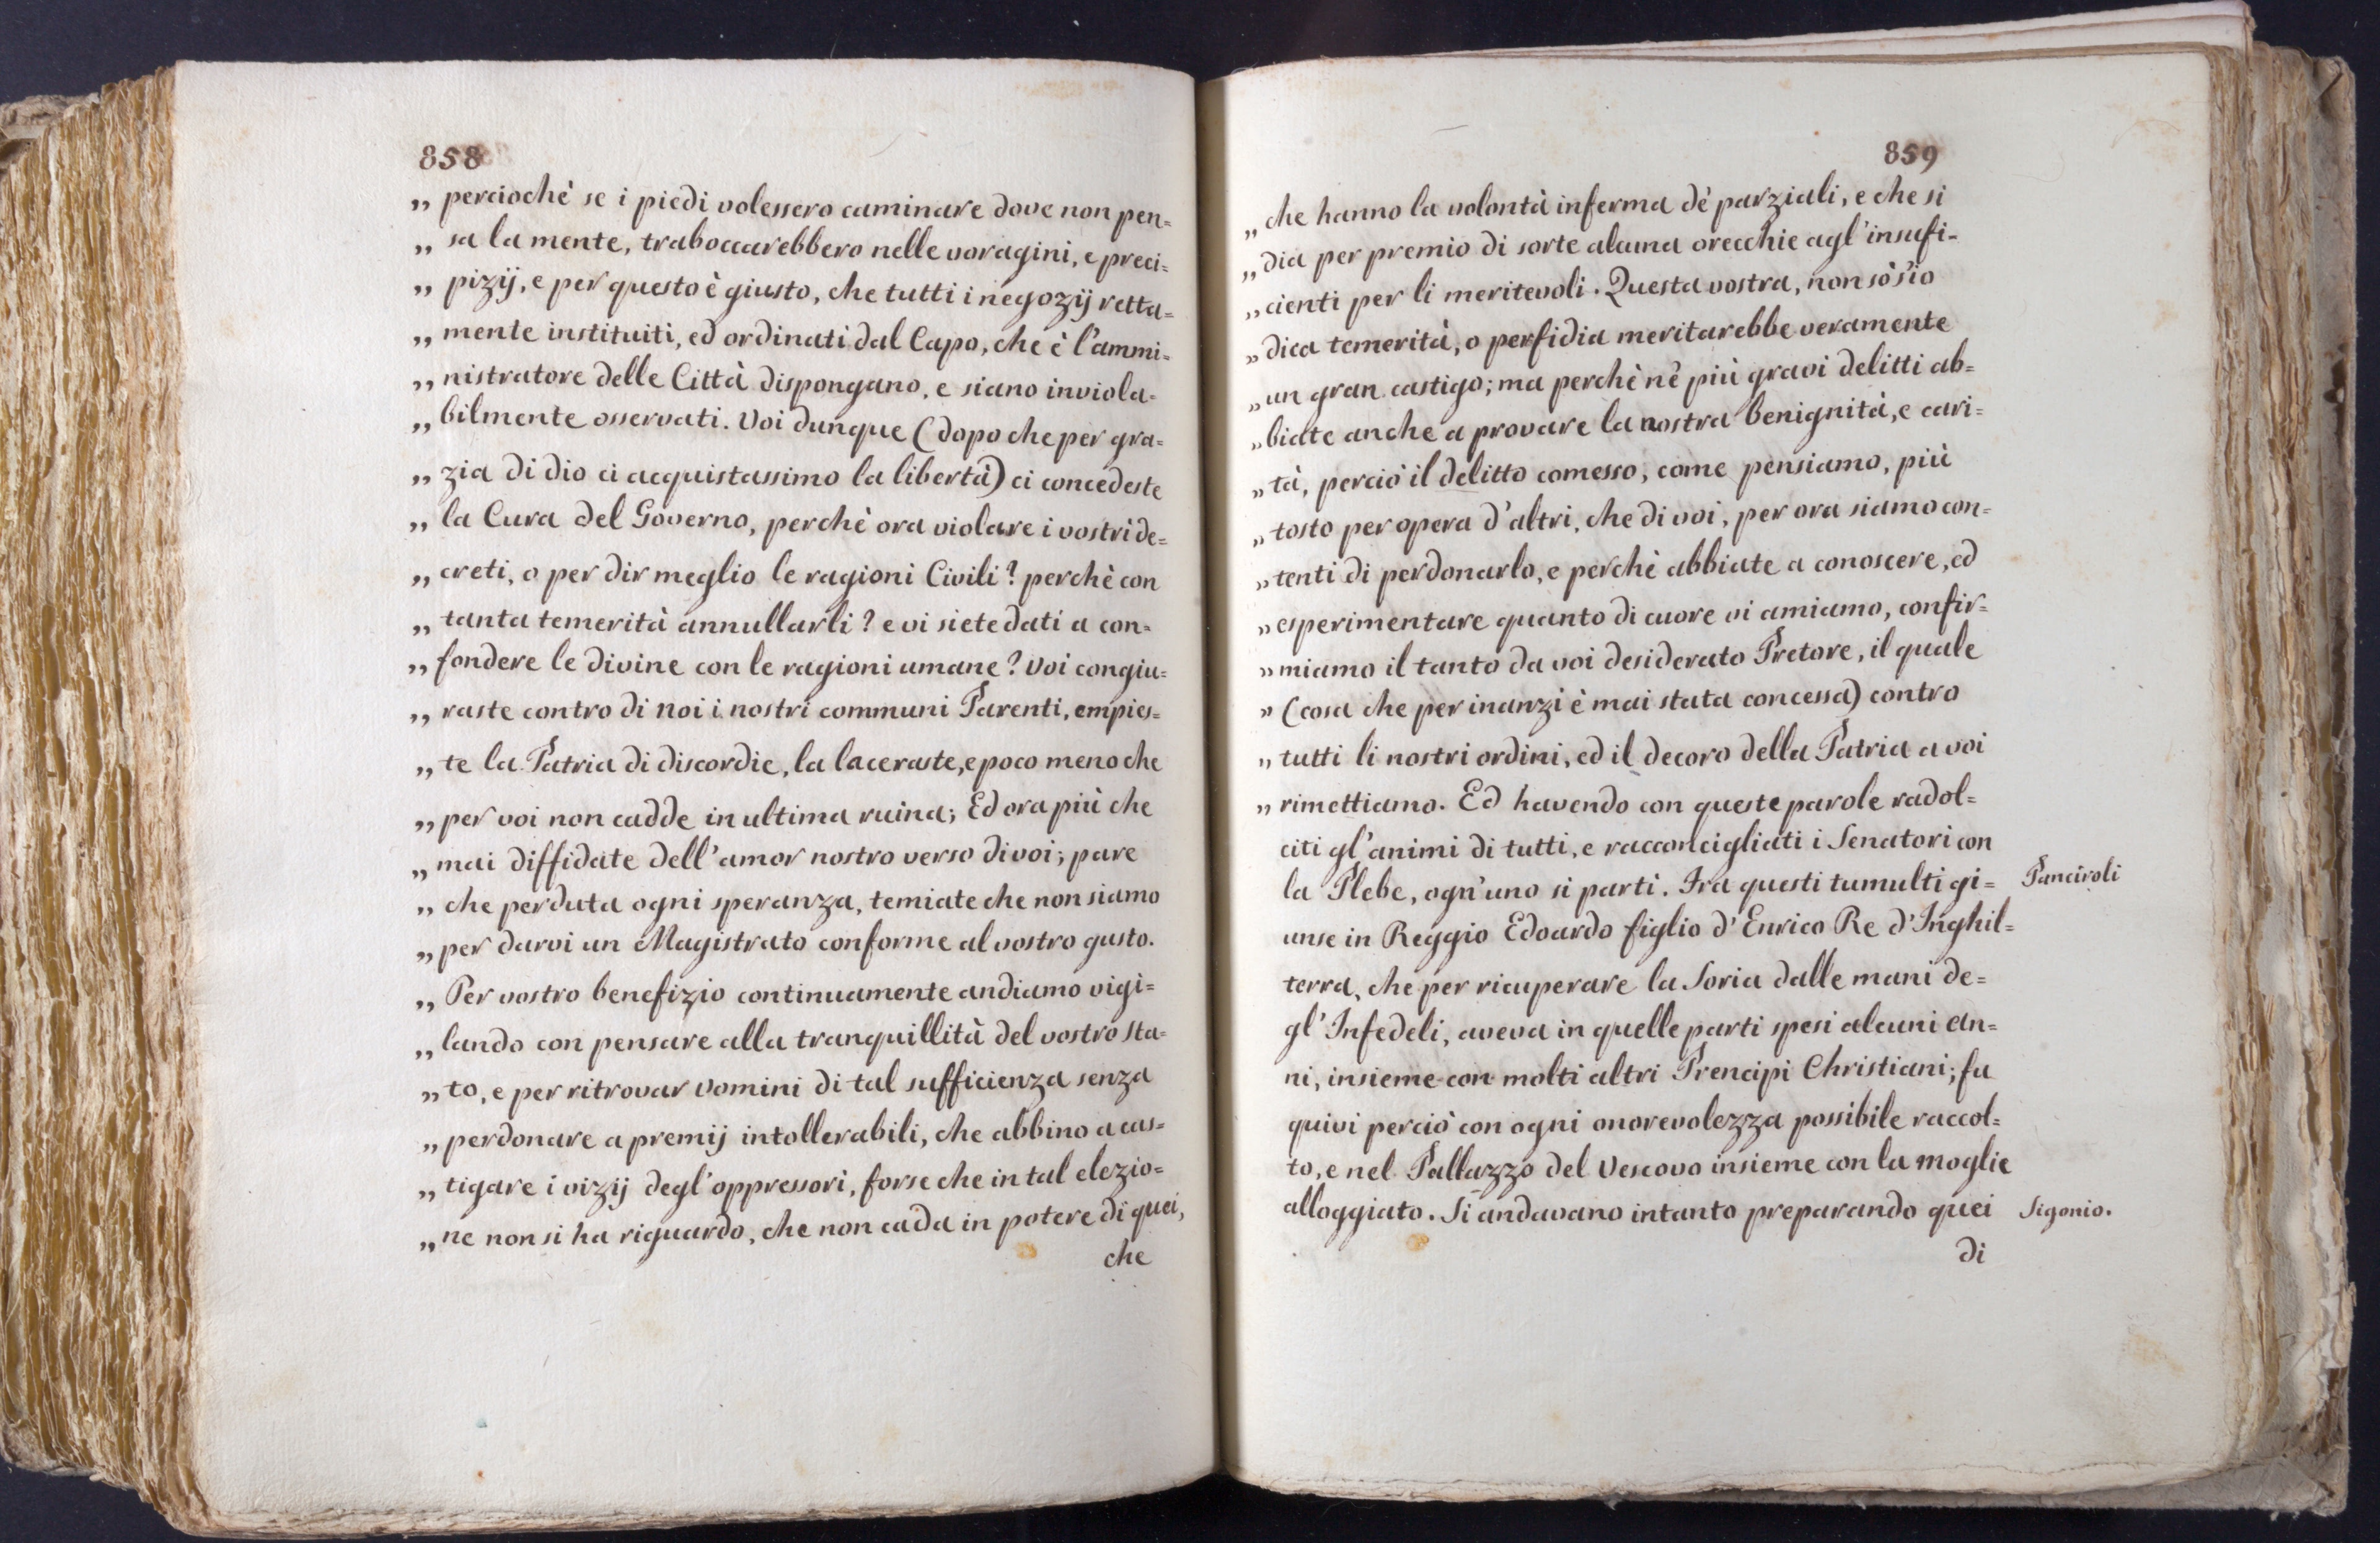 858
„ perciochè se i piedi volessero caminare dove non pen=
„ sa la mente, traboccarebbero nelle voragini, e preci=
„ pizij, e per questo è giusto, che tutti i negozij retta=
„ mente instituiti, ed ordinati dal Capo, che è l'ammi=
„ nistratore delle Città dispongano, e siano inviola=
„ bilmente osservati. Voi dunque (dopo che per gra=
„ zia di dio ci acquistassimo la libertà) ci concedeste
„ la Cura del Governo, perchè ora violare i vostri de=
„ creti, o per dir meglio le ragioni Civili? perchè con
„ tanta temerità annullarli? e vi siete dati a con=
„ fondere le divine con le ragioni umane? Voi congiu=
„ raste contro di noi i nostri communi Parenti, empies=
„ te la Patria di discordie, la laceraste, e poco meno che
„ per voi non cadde in ultima ruina; Ed ora più che
„ mai diffidate dell'amor nostro verso di voi; pare
„ che perduta ogni speranza, temiate che non siamo
„ per darvi un Magistrato conforme al vostro gusto.
„ Per vostro benefizio continuamente andiamo vigi=
„ lando con pensare alla tranquillità del vostro sta=
„ to, e per ritrovar vomini di tal sufficienza senza
„ perdonare a premij intollerabili, che abbino a cas=
„ tigare i vizij degl'oppressori, forse che in tal elezio=
„ ne non si ha riguardo, che non cada in potere di quei,
che
859
„ che hanno la volontà inferma dè parziali, e che si
„ dia per premio di sorte alcuna orecchie agl'insufi=
„ cienti per li meritevoli. Questa vostra, non sò s'io
„ dica temerità, o perfidia meritarebbe veramente
„ un gran castigo; ma perchè nè più gravi delitti ab=
„ biate anche a provare la nostra benignità, e cari=
„ tà, perciò il delitto comesso, come pensiamo, più
„ tosto per opera d'altri, che di voi, per ora siamo con=
„ tenti di perdonarlo, e perchè abbiate a conoscere, ed
„ esperimentare quanto di cuore vi amiamo, confir=
„ miamo il tanto da voi desiderato Pretore, il quale
„ (cosa che per inanzi è mai stata concessa) contro
„ tutti li nostri ordini, ed il decoro della Patria a voi
„ rimettiamo. Ed havendo con queste parole radol=
citi gl'animi di tutti, e racconcigliati i Senatori con
la Plebe, ogn'uno si parti. Fra questi tumulti gi= Panciroli
unse in Reggio Edoardo figlio d'Enrico Re d'Inghil=
terra, che per ricuperare la Soria dalle mani de=
gl'Infedeli, aveva in quelle parti spesi alcuni an=
ni, insieme con molti altri Prencipi Christiani; fu
quivi perciò con ogni onorevolezza possibile raccol=
to, e nel Pallazzo del Vescovo insieme con la moglie
alloggiato. Si andavano intanto preparando quei Sigonio.
di